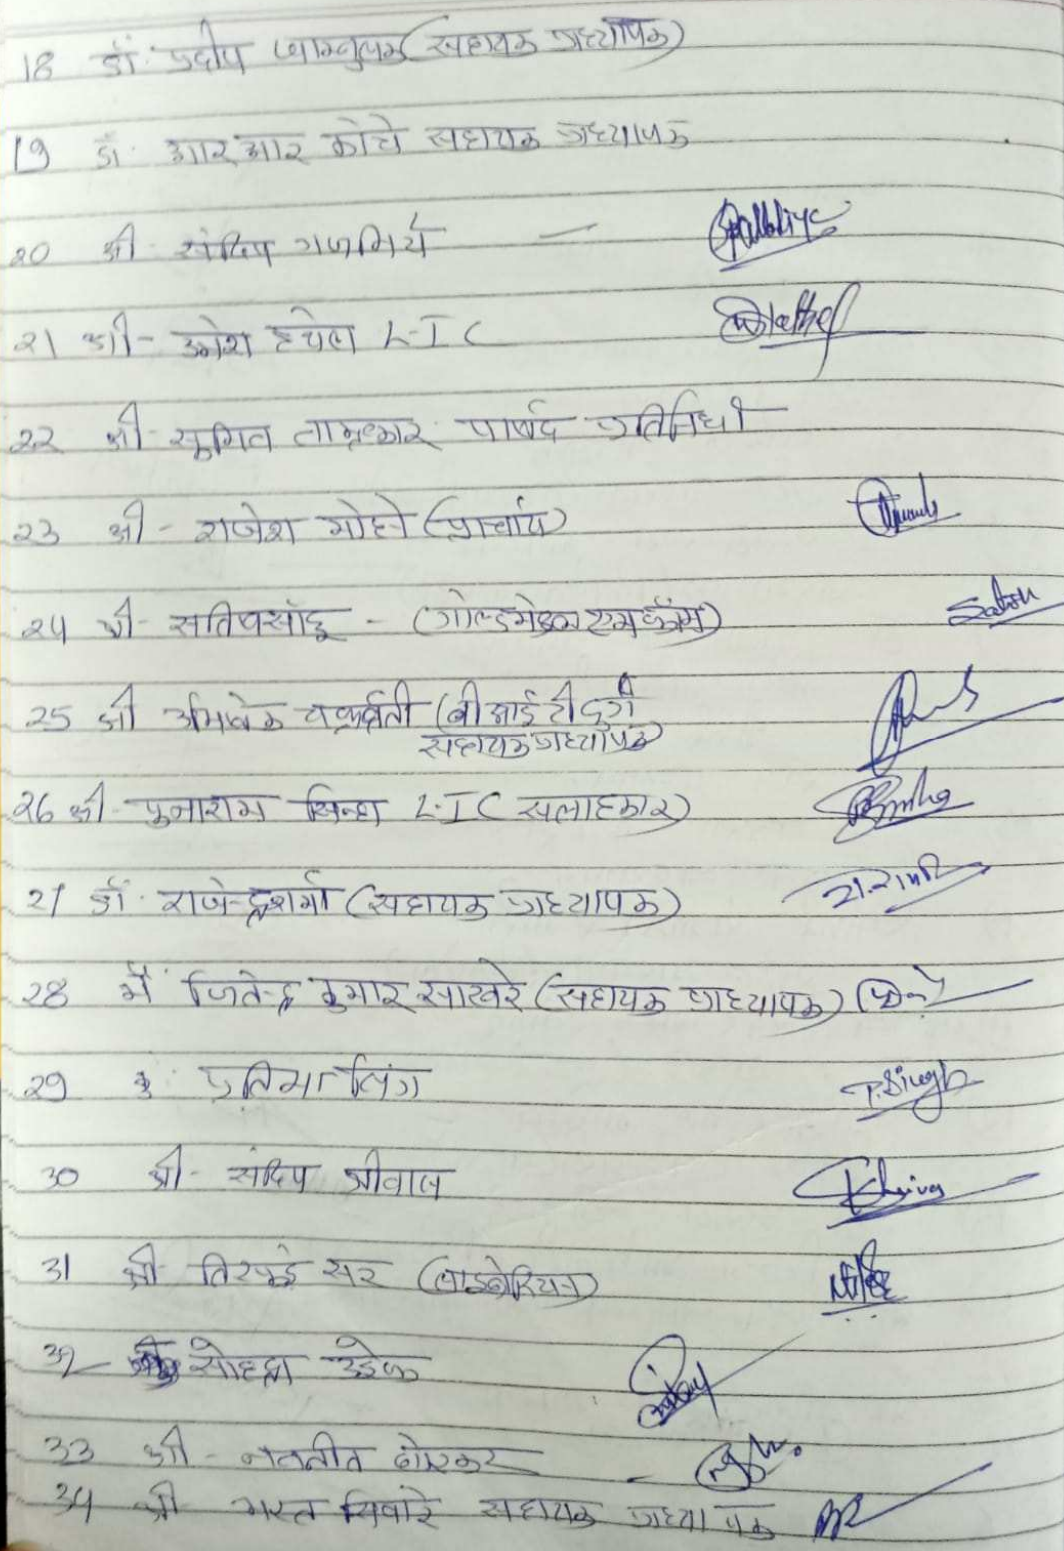 18 डॉ. प्रदीप जाम्बुलकर (सहायक प्राध्यापक)
19 डॉ. आर आर कोचे सहायक प्राध्यापक
20 श्री संदिप गजभिये
21 श्री - उमेश हथेल L-I C
22 श्री सुमित ताम्रकार पार्षद प्रतिनिधी
23 श्री - राजेश मोहने (प्राचार्य)
24 श्री - सतिष साहू - (गोल्डमेडल एम कॉम) Satish
25 श्री अभिषेक चक्रवर्ती (बी आई टी दुर्ग
सहायक प्राध्यापक)
26 श्री - पुनाराम सिन्हा L-I C सलाहकार) Sinha
27 डॉ. राजेन्द्र शर्मा (सहायक प्राध्यापक)
28 मैं जितेन्द्र कुमार साखरे (सहायक प्राध्यापक)
29 कु. प्रतिमा सिंग P. Singh
30 श्री - संदिप श्रीवास
31 श्री तिरपुडे सर (लाइब्रेरियन)
32 सोहद्रा उइके
33 श्री - नवनीत
34 श्री भरत सिवारे सहायक प्राध्यापक